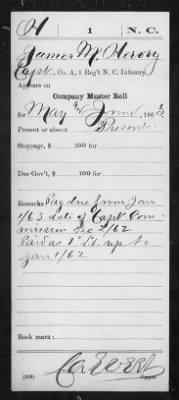 H 1 N. C.
James M. Hervey
Capt, Co. A, 1 Reg't N. C. Infantry.
Appears on
Company Muster Roll
for May & June, 1863.
Present or absent Present
Stoppage, $ 100 for
Due Gov't, $ 100 for
Remarks Pay due from Jan
1/63 date of Capt Com-
mission Dec 2/62
Paid as 1" Lt. up to
Jan 1/62
Book mark:
Copyist.